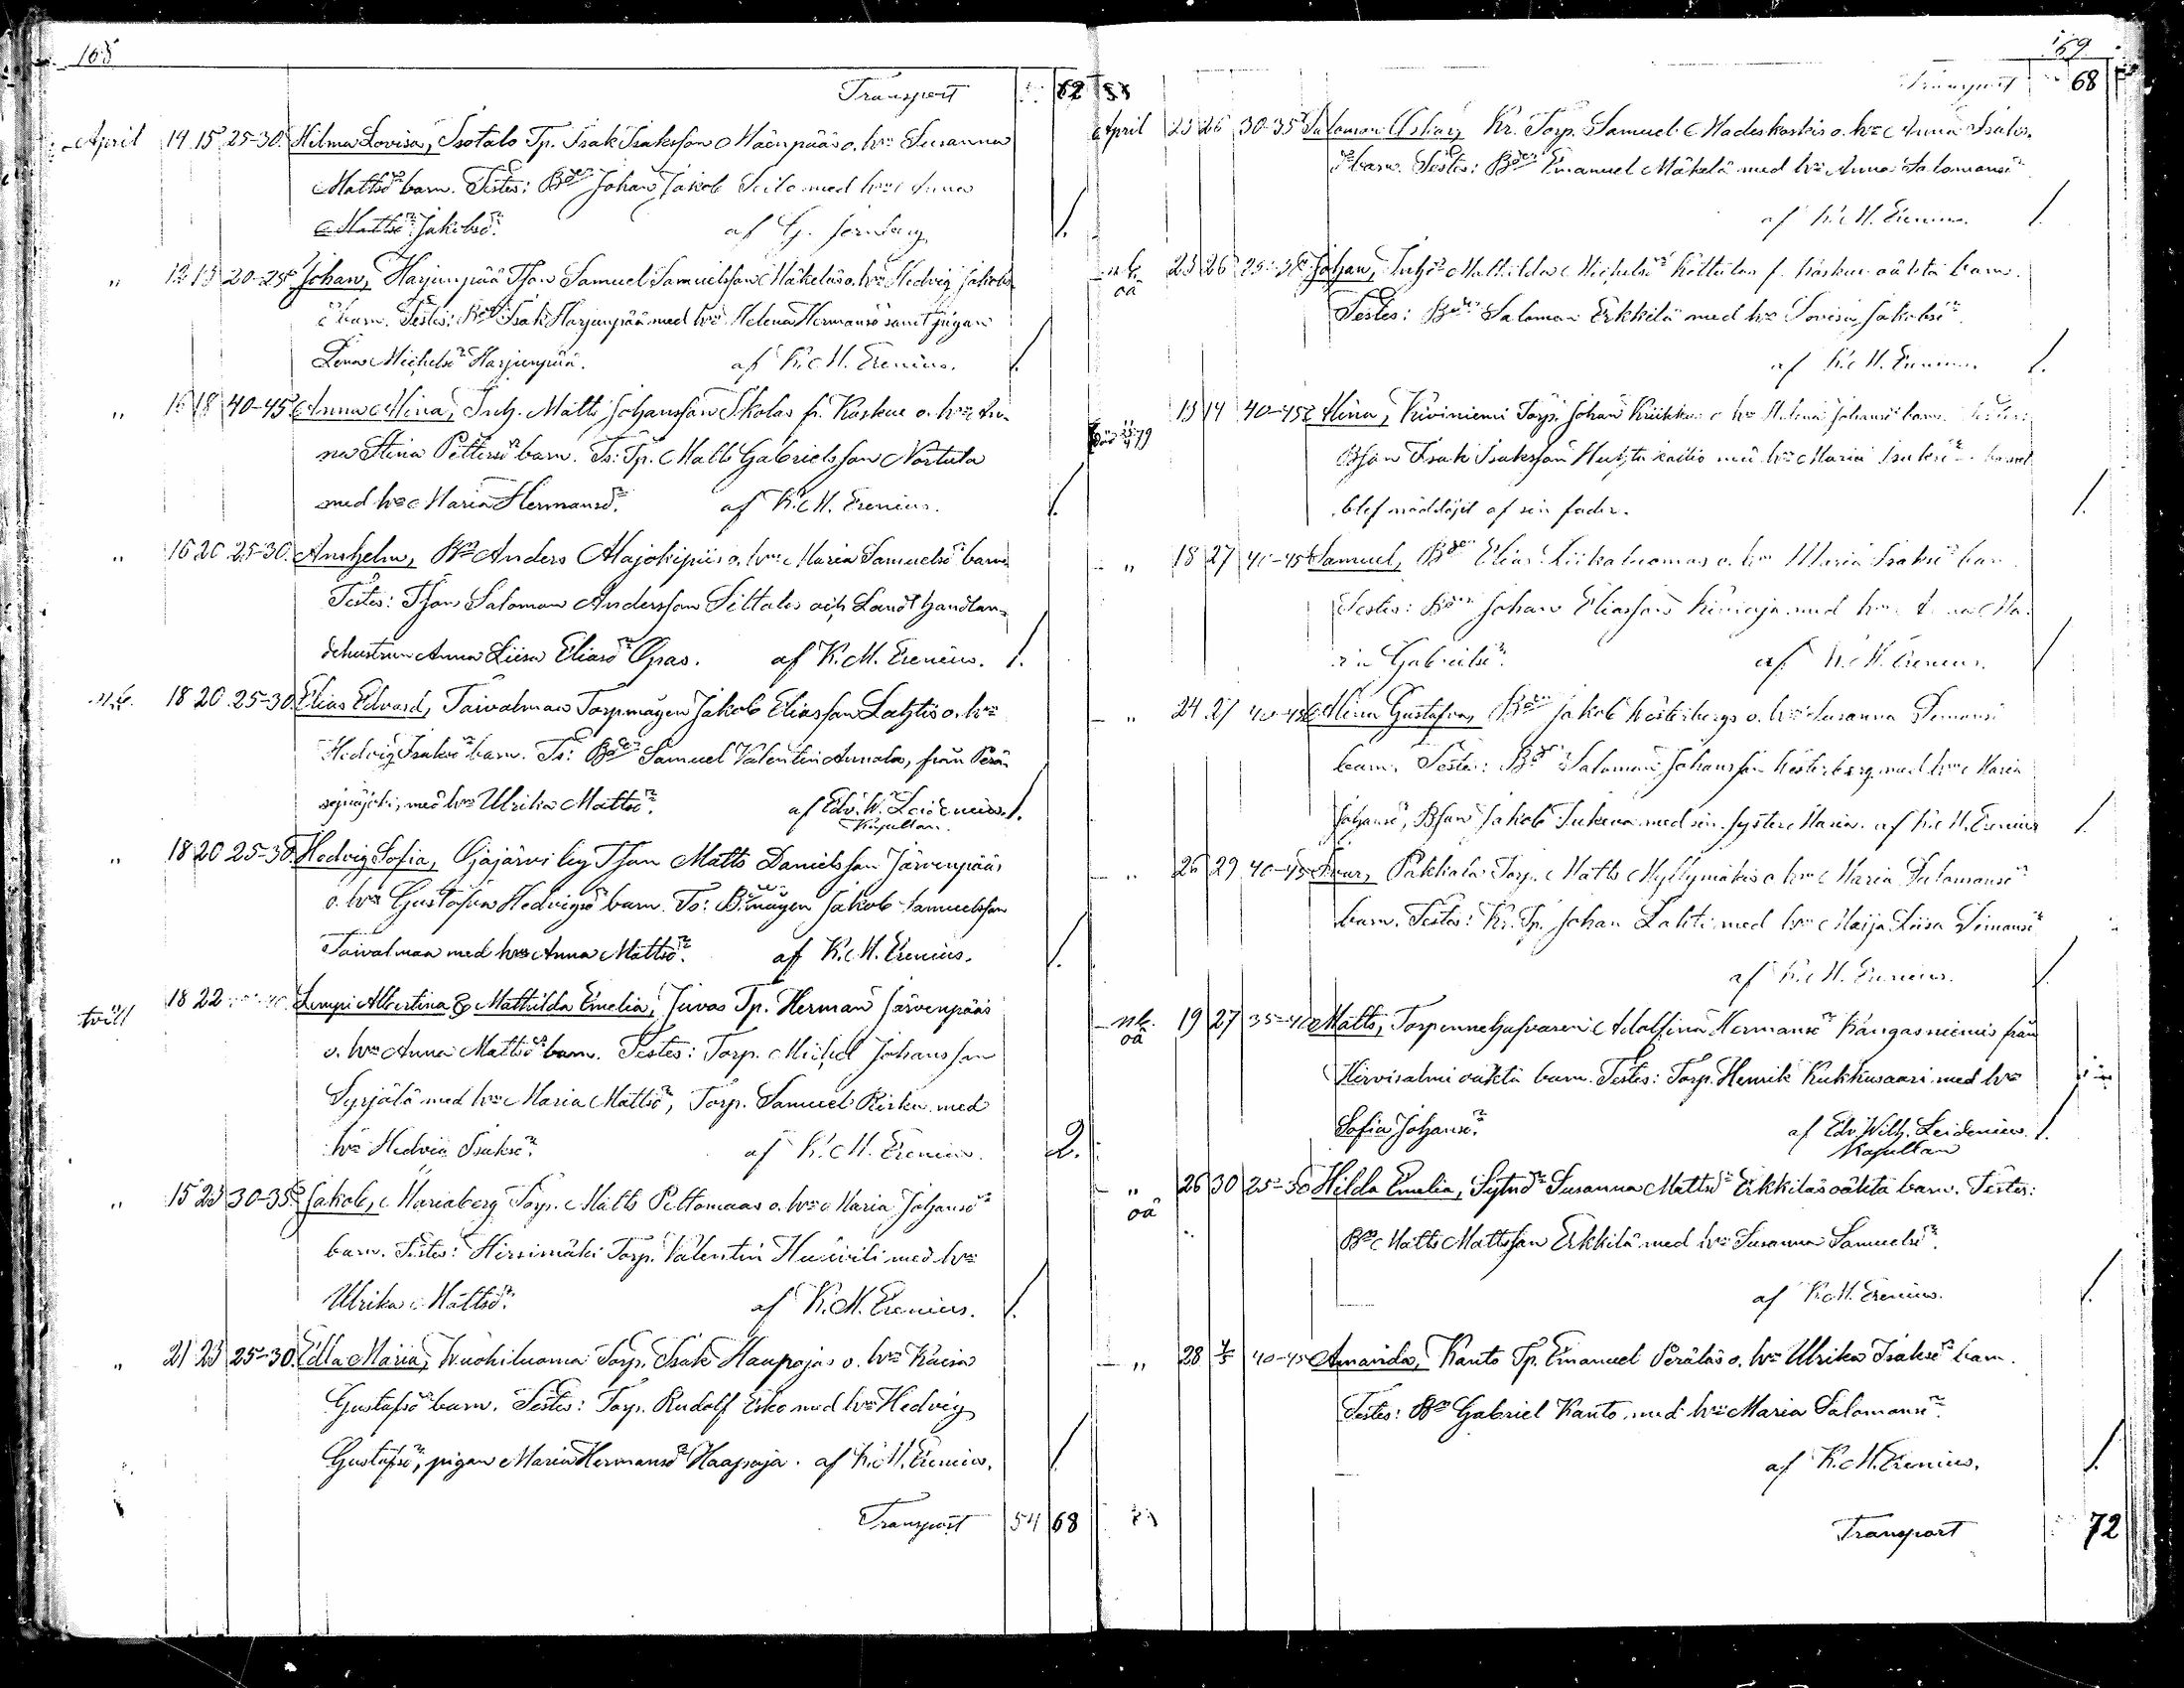 168
Transport 62
April 14 15 25-30. Hilma Lovisa, Isotalo Tp. Isak Isaksson Mäenpääs o. hu Susanna
Mattsdr barn. Testes: Bden Johan Jakob Seilo med hu Anna
Mattsdr Jakobsdr. af G. 1.
" 12 13 20-25 Johan, Harjunpää Tson Samuel Samuelsson Mäkeläs o. hu Hedvig Jakobs
dr barn. Testes: Bden Isak Harjunpää med hu Helena Hermansdr samt pigan
Lena Michelsdr Harjunpää. af K. M. Erenius. 1.
" 16 18 40-45 Anna Stina, Inh. Matts Johansson Skolas fr. Kaskue o. hu An-
na Stina Pettersdr barn. Ts: Tp. Matts Gabrielsson Nortula
med hu Maria Hermansdr. af K. M. Erenius. 1.
" 16 20 25-30. Anshelm, Bn Anders Alajokipiis o. hu Maria Samuelsdr barn
Testes: Tson Salomon Andersson Siltala och Landthandlan-
dehustrun Anna Liisa Eliasdr Gras. af K. M. Erenius. 1.
n.k. 18 20 25-30. Elias Edvard, Taivalmaa Torpmågen Jakob Eliasson Lahtis o. hu
Hedvig Isaksdr barn. Ts: Bden Samuel Valentin Annala, från Perä-
seinäjoki, med hu Ulrika Mattsdr. af Edv. W. Leidenius. 1.
Kapellan.
" 18 20 25-30. Hedvig Sofia, Ojajärvi by Tson Matts Danielsson Järvenpääs
o. hu Gustafva Hedvigsdr barn. Ts: B.mågen Jakob Samuelsson
Taivalmaa med hu Anna Mattsdr. af K. M. Erenius. 1.
tvill 18 22 Lempi Albertina & Mathilda Emelia, Juvas Tp. Herman Järvenpääs
o. hu Anna Mattsdr barn. Testes: Torp. Michel Johansson
Syrjälä med hu Maria Mattsdr, Torp. Samuel Risku med
hu Hedvig Isaksdr. af K. M. Erenius. 2.
" 15 23 30-35 Jakob, Mariaberg Torp. Matts Peltomaas o. hu Maria Johansdr
barn. Testes: Hirsimäki Torp. Valentin med hu
Ulrika Mattsdr. af K. M. Erenius. 1.
" 21 23 25-30. Edla Maria, Wuohiluoma Torp. Isak Haapojas o. hu Kaisa
Gustafsdr barn. Testes: Torp. Rudolf Esko med hu Hedvig
Gustafsdr, pigan Maria Hermansdr Haapoja. af K. M. Erenius. 1
Transport 54 68
169
Transport 68
April 23 26 30-35 Salomon Oskar, Kr. Torp. Samuel Madeskoskis o. hu Anna Isaks-
dr barn. Testes: Bden Emanuel Mäkelä med hu Anna Salomonsdr
af K. M. Erenius. 1.
n.k. oä 23 26 25-30 Johan, Inhs Mathilda Michelsdr Kottilas f. Kaskue oäkta barn.
Testes: Bden Salomon Erkkilä med hu Lovisa Jakobsdr.
af K. M. Erenius. 1.
" 13 14 40-45 Stina, Kiviniemi Torp. Johan Kriikkus o hu Helena Johansdr barn. Testes:
Bson Isak Isaksson med hu Maria Isaksdr. barnet
blef nöddöpt af sin fader. 1.
" 18 27 40-45 Samuel, Bden Elias Liikaluomas o. hu Maria Isaksdr barn
Testes: Bden Johan Eliasson med hu Anna Ma-
ria Gabrielsdr. af K. M. Erenius. 1
" 24 27 40-45 Hilma Gustafva, Bden Jakob Kesterbergs o. hu Susanna Simonsdr
barn. Testes: Bden Salomon Johansson Kesterberg med hu Maria
Johansdr, Bson Jakob Jukora med sin syster Maria. af K. M. Erenius 1.
" 26 29 40-45 Ivar, Pakkala Torp. Matts Myllymäkis o hu Maria Salomonsdr
barn. Testes: Kr. Tp. Johan Lahti med hu Maija Liisa Simonsdr
af K. M. Erenius. 1.
n.k. oä 19 27 35-40 Matts, Torpinnehafvaren Adolfina Hermansdr Kangasniemis från
Hirvisalmi oäkta barn. Testes: Torp. Henrik Kukkusaari med hu
Sofia Johansdr. af Edv. Wilh. Leidenius. 1.
Kapellan
" oä 26 30 25-30 Hilda Emelia, Sytnd Susanna Mattsdr Erkkiläs oäkta barn. Testes:
Bn Matts Mattsson Erkkilä med hu Susanna Samuelsdr.
af K. M. Erenius. 1.
" 28 40-45 Amanda, Kanto Tp. Emanuel Peräläs o. hu Ulrika Isaksdr barn.
Testes: Bn Gabriel Kanto med hu Maria Salomonsdr.
af K. M. Erenius. 1.
Transport 72